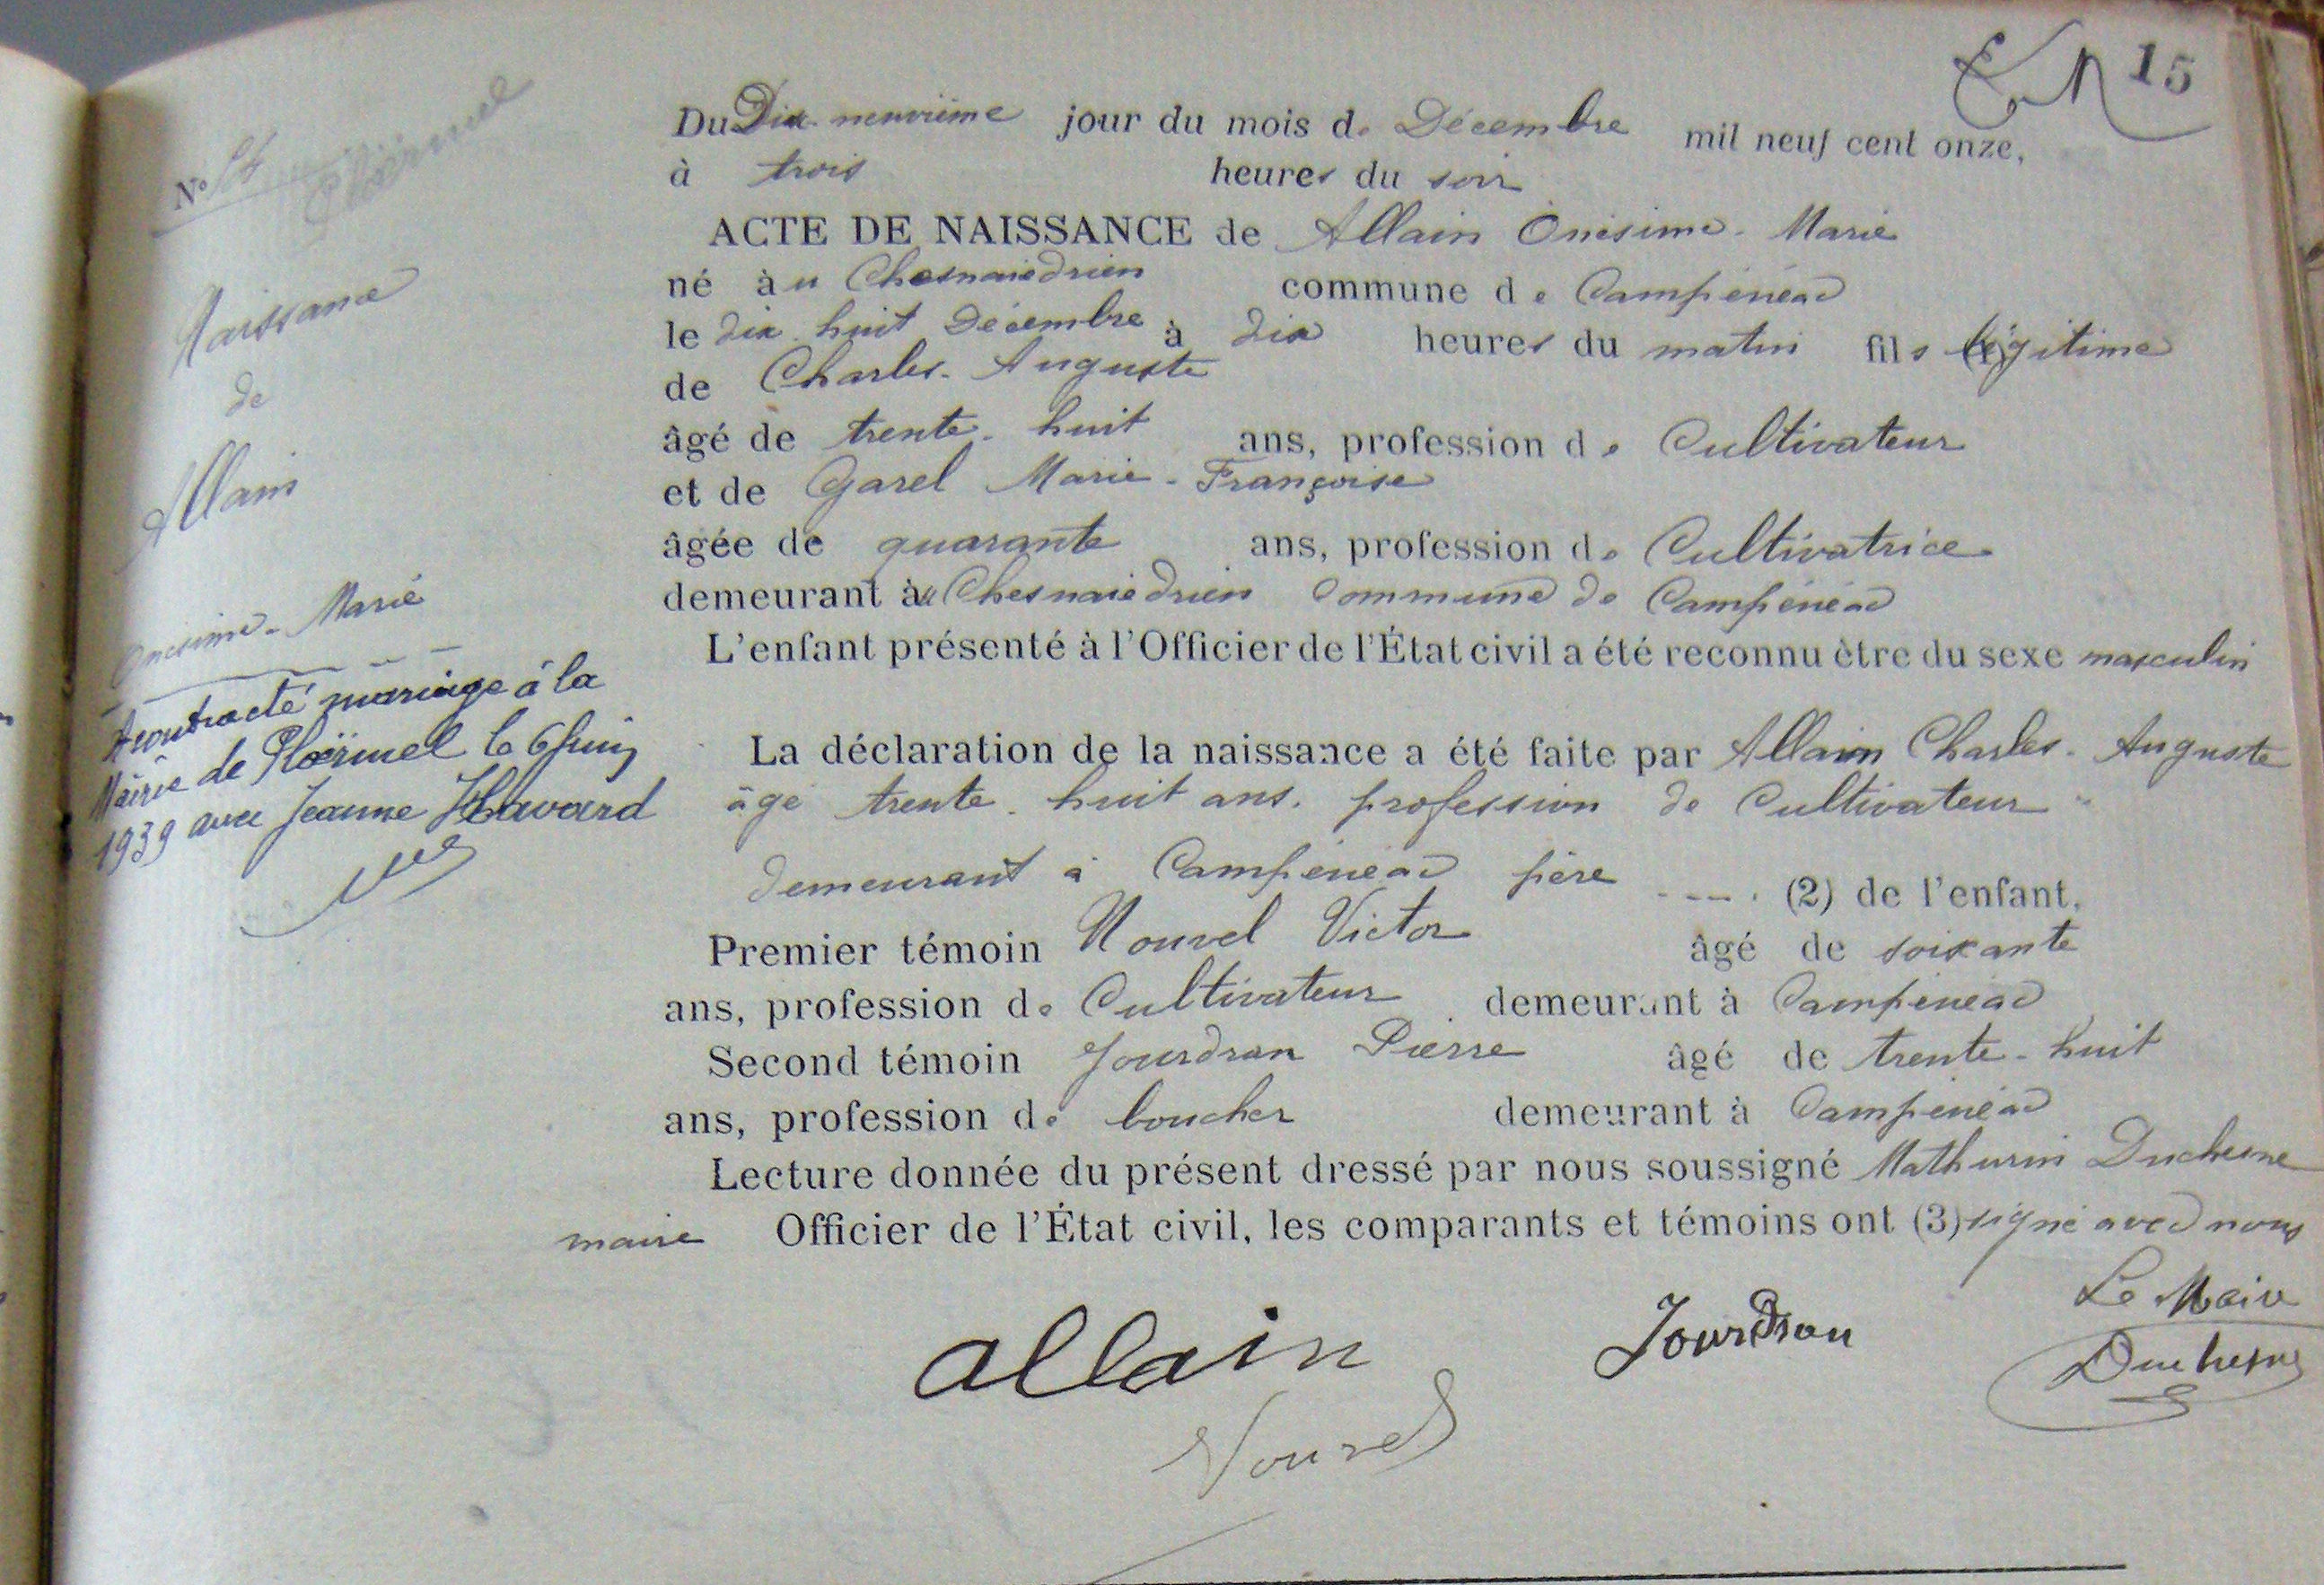 15
Du Dix-neuvième jour du mois de Décembre mil neuf cent onze,
à trois heures du soir
ACTE DE NAISSANCE de Allain Onésime-Marie
né au Chesnaiedrien commune de Campénéac
le dix-huit Décembre à dix heures du matin fils légitime
de Charles-Auguste
âgé de trente-huit ans, profession de Cultivateur
et de Garel Marie-Françoise
âgée de quarante ans, profession de Cultivatrice
demeurant au Chesnaiedrien Commune de Campénéac
L'enfant présenté à l'Officier de l'État civil a été reconnu être du sexe masculin
La déclaration de la naissance a été faite par Allain Charles-Auguste
âgé trente-huit ans, profession de Cultivateur
demeurant à Campénéac père (2) de l'enfant.
Premier témoin Nouvel Victor âgé de soixante
ans, profession de Cultivateur demeurant à Campénéac
Second témoin Jourdran Pierre âgé de trente-huit
ans, profession de boucher demeurant à Campénéac
Lecture donnée du présent dressé par nous soussigné Mathurin Duchesne
maire Officier de l'État civil, les comparants et témoins ont (3) signé avec nous
Le Maire
allain Jourdran Duchesne
Nouvel
No
Ploërmel
Naissance
de
Allain
Onésime-Marie
A contracté mariage à la
Mairie de Ploërmel le 6 Juin
1939 avec Jeanne Havard